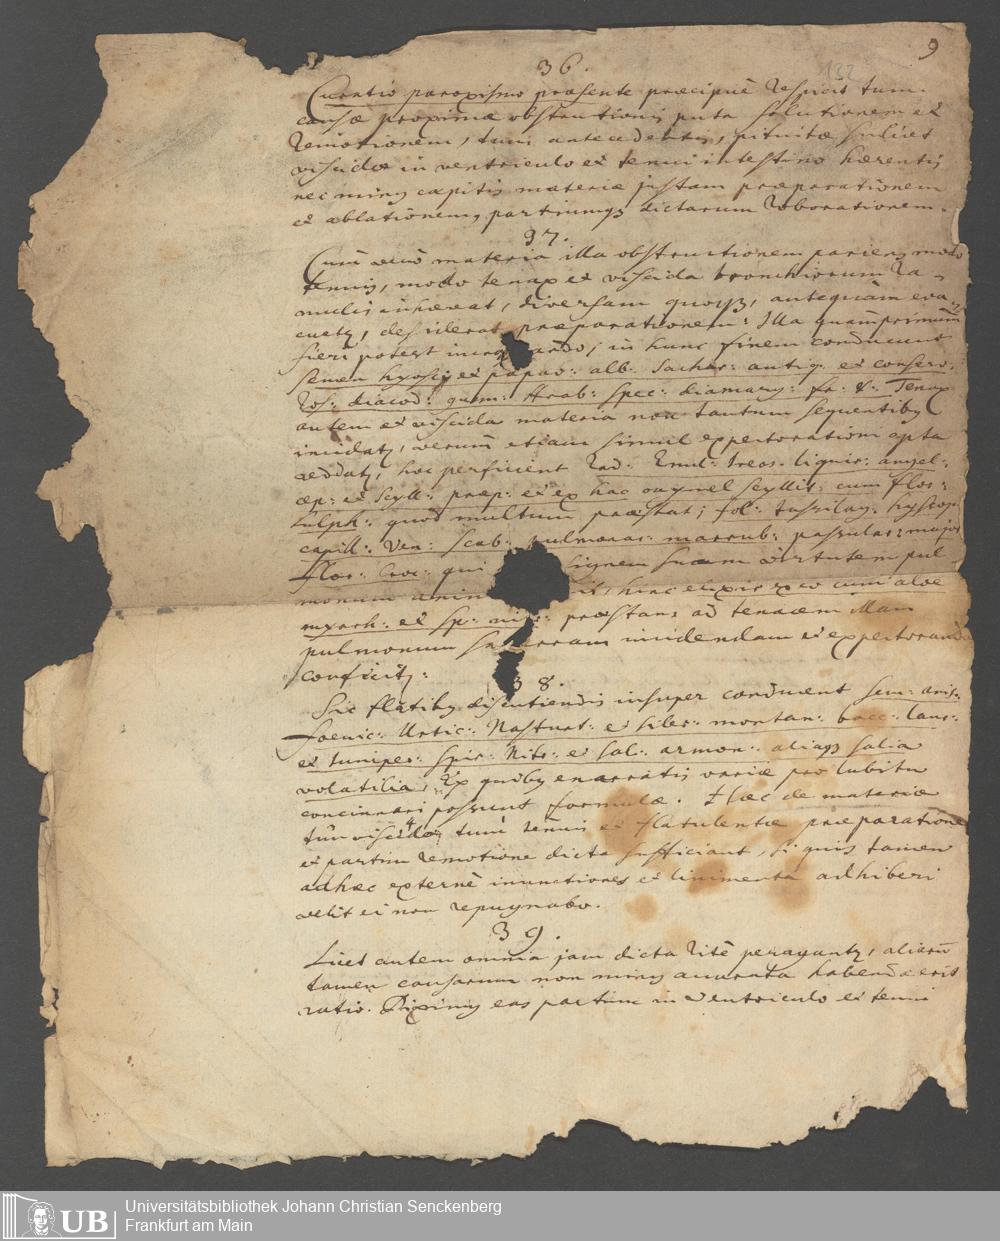 9
132
36.
Curatio paroxismo præsente præcipuè respicit tum
causæ proximæ obstructionis puta solutionem et
remotionem, tum antecedentis, pituitæ scilicet
viscidæ in ventriculo et tenui intestino hærentis
nec minus capitis materiæ justam præparationem
et ablationem, partiumq; dictarum roborationem.
37.
Cum verò materia illa obstructionem pariens modo
tenuis, modo tenax et viscida bronchiorum ra-
mulis inhæreat, diversam quoq;, antequàm eva-
cuetr, desiderat præparationem: Illa quamprimùm
fieri potest ; in hunc finem conducunt
semen hyoscy et papav: alb: Sachar: antiq: et conserv:
ros: diacod: gum: Arab: spec: diamarg: fr: &: Tenax
autem et viscida materia non tantum sequentibus
incidatr, verum etiam simul expectorationi apta
reddatr, hoc perficient Rad: Enul: Ireos. liquir: angel:
cep: et scyll: præp: et ex hac oxymel scyllit: cum flor:
sulph: quod multum præstat; fol: tussilag: hyssop:
capill: Ven: scab: pulmonar: marrub: passular: major
Flor: Croc: qui insignem suam virtutem pul
monum hinc elixir cum aloe
myrrh: et sp: præstans ad tenacem illam
pulmonum incidendam et expectorandam
conficitr:
38.
Sic flatibus discutiendis insuper conducent sem: anis:
foenic: Urtic: Nasturt: et siler: montan: bacc: laur:
et Juniper: Spir: Nitr: et sal: armon: aliaq; salia
volatilia, Ex quibus enarratis variæ pro lubitu
concinnari possunt formulæ. Hæc de materiæ
tùm viscidæ tùm tenuis et flatulentæ præparatione
et partim remotione dicta sufficiant, si quis tamen
adhæc externè inunctiones et linimenta adhiberi
velit ei non repugnabo.
39.
Licet autem omnia jam dicta ritè peragantr, aliarũ
tamen causarum non minus accurata habenda erit
ratio. Diximus eas partim in ventriculo et tenui
UB
Universitätsbibliothek Johann Christian Senckenberg
Frankfurt am Main